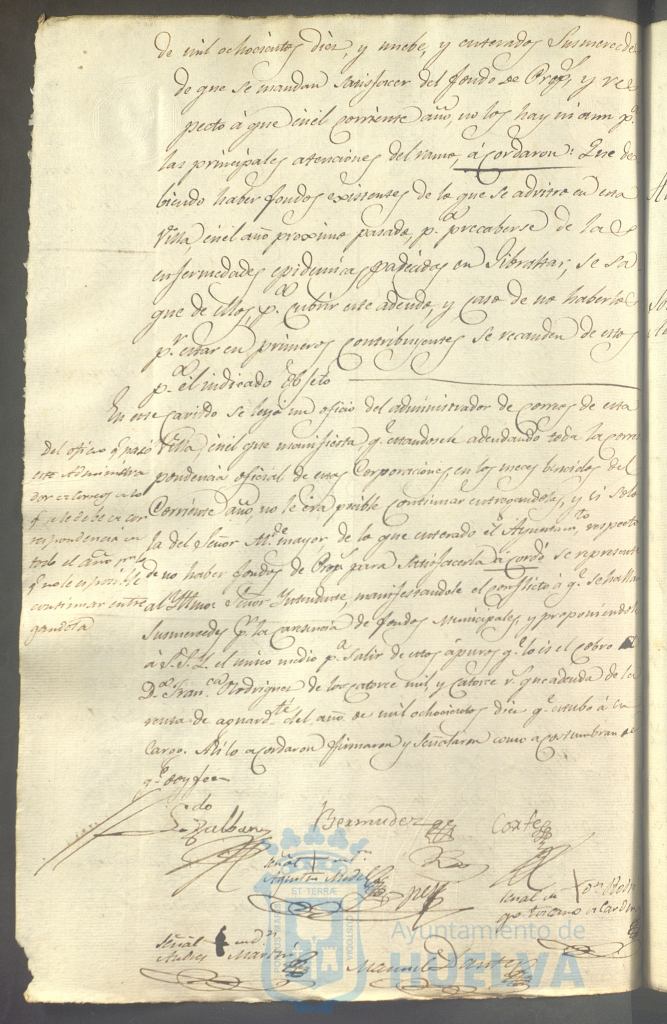 de mil ochocientos diez, y nuebe, y enterados Susmercedes
de que se mandan satisfacer del fondo de Prop.s, y res
pecto á que en el corriente año, no los hay ni aun p.a
las principales atenciones del ramo, acordaron: Que de
biendo haber fondos existentes de lo que se advitró en esta
Villa en el año proximo pasado, p.a precaberse de las
enfermedades epidemicas padecidas en Gibraltar, se sa
que de ellos, p.a cubrir este adeudo, y caso de no haberlos
p.r estar en primeros Contribuyentes se recauden de estos
p.a el indicado Objeto
En este Cavildo se leyó un oficio del administrador de correos de esta
Villa, en el que manifiesta q.e estandosele adeudando toda la corres
pondencia oficial de estas Corporaciones, en los meses bencidos del
Corriente año, no le era posible continuar entregandola, y si solo
la del Señor Al.de mayor, de lo que enterado el Ayuntam.to, respecto
de no haber fondos de Prop.s para satisfacerla acordó se represente
al Ylmo. Señor Yntendente, manifestandole el conflicto á q.e se hallan
Susmercedes p.r la carencia de fondos Municipales, y proponiendole
á S.S.Y. el unico medio p.a salir de estos ápuros q.e lo es el cobro
D.n Fran.co Rodriguez de los catorce mil y catorce r.s que adeuda de la
renta de aguard.te del año de mil ochocientos diez q.e estubo á su
Cargo. Asi lo acordaron firmaron y señalaron como acostumbran de
q.e doy fee
Del oficio q.e pasó
este Administra
dor de correos a lo
q.e se le debe de cor
respondencia en
todo el año
q.e no le es posible
continuar entre
gandola
Bermudez
Cortes
Señal
Agustin
Señal
Señal
Andres Martin
Manuel
PORTUS MARIS
ET TERRÆ
CUSTODIA
Ayuntamiento de
HUELVA